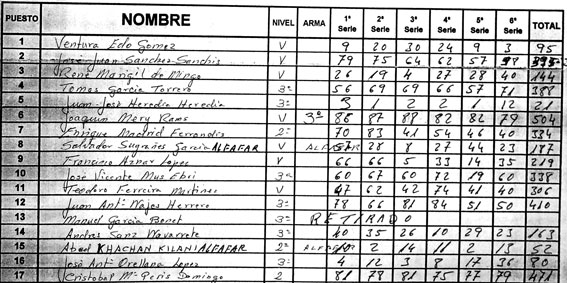 PUESTO NOMBRE NIVEL ARMA 1ª Serie 2ª Serie 3ª Serie 4ª Serie 5ª Serie 6ª Serie TOTAL
1 Ventura Edo Gomez V 9 20 30 24 9 3 95
2 José Juan Sanchez-Sanchis V 79 75 64 62 57
3 René Marigil de Mingo V 26 19 4 27 28 40 144
4 Tomas Garcia Torrero 3ª 56 69 66 69 57 71 388
5 Juan José Heredia Heredia 3 1 2 2 1 12 21
6 Joaquim Mery Rams V 3ª 86 87 88 82 82 79 504
7 Enrique Madrid Ferrandis 2ª 70 83 41 54 46 40 334
8 Salvador Sugrañes Garcia ALFAFAR 57 28 8 27 44 23 187
9 Francisco Aznar Lopez V 66 66 5 33 14 35 219
10 José Vicente Mus 3ª 60 67 60 72 19 60 338
11 Teodoro Ferreira Martinez V 47 62 42 74 41 40 306
12 Juan Antº Najes Herrero 3ª 78 66 81 84 51 50 410
13 Manuel Garcia 3ª RETIRADO
14 Andres Sanz Navarrete 3ª 40 35 26 10 29 23 163
15 Abed KHACHAN KILANI ALFAFAR 2ª 2 14 11 2 13 52
16 José Antº Orellana Lopez 3ª 4 12 3 8 17 36 80
17 Cristobal Mª Peris Domingo 2 81 78 81 75 77 79 471